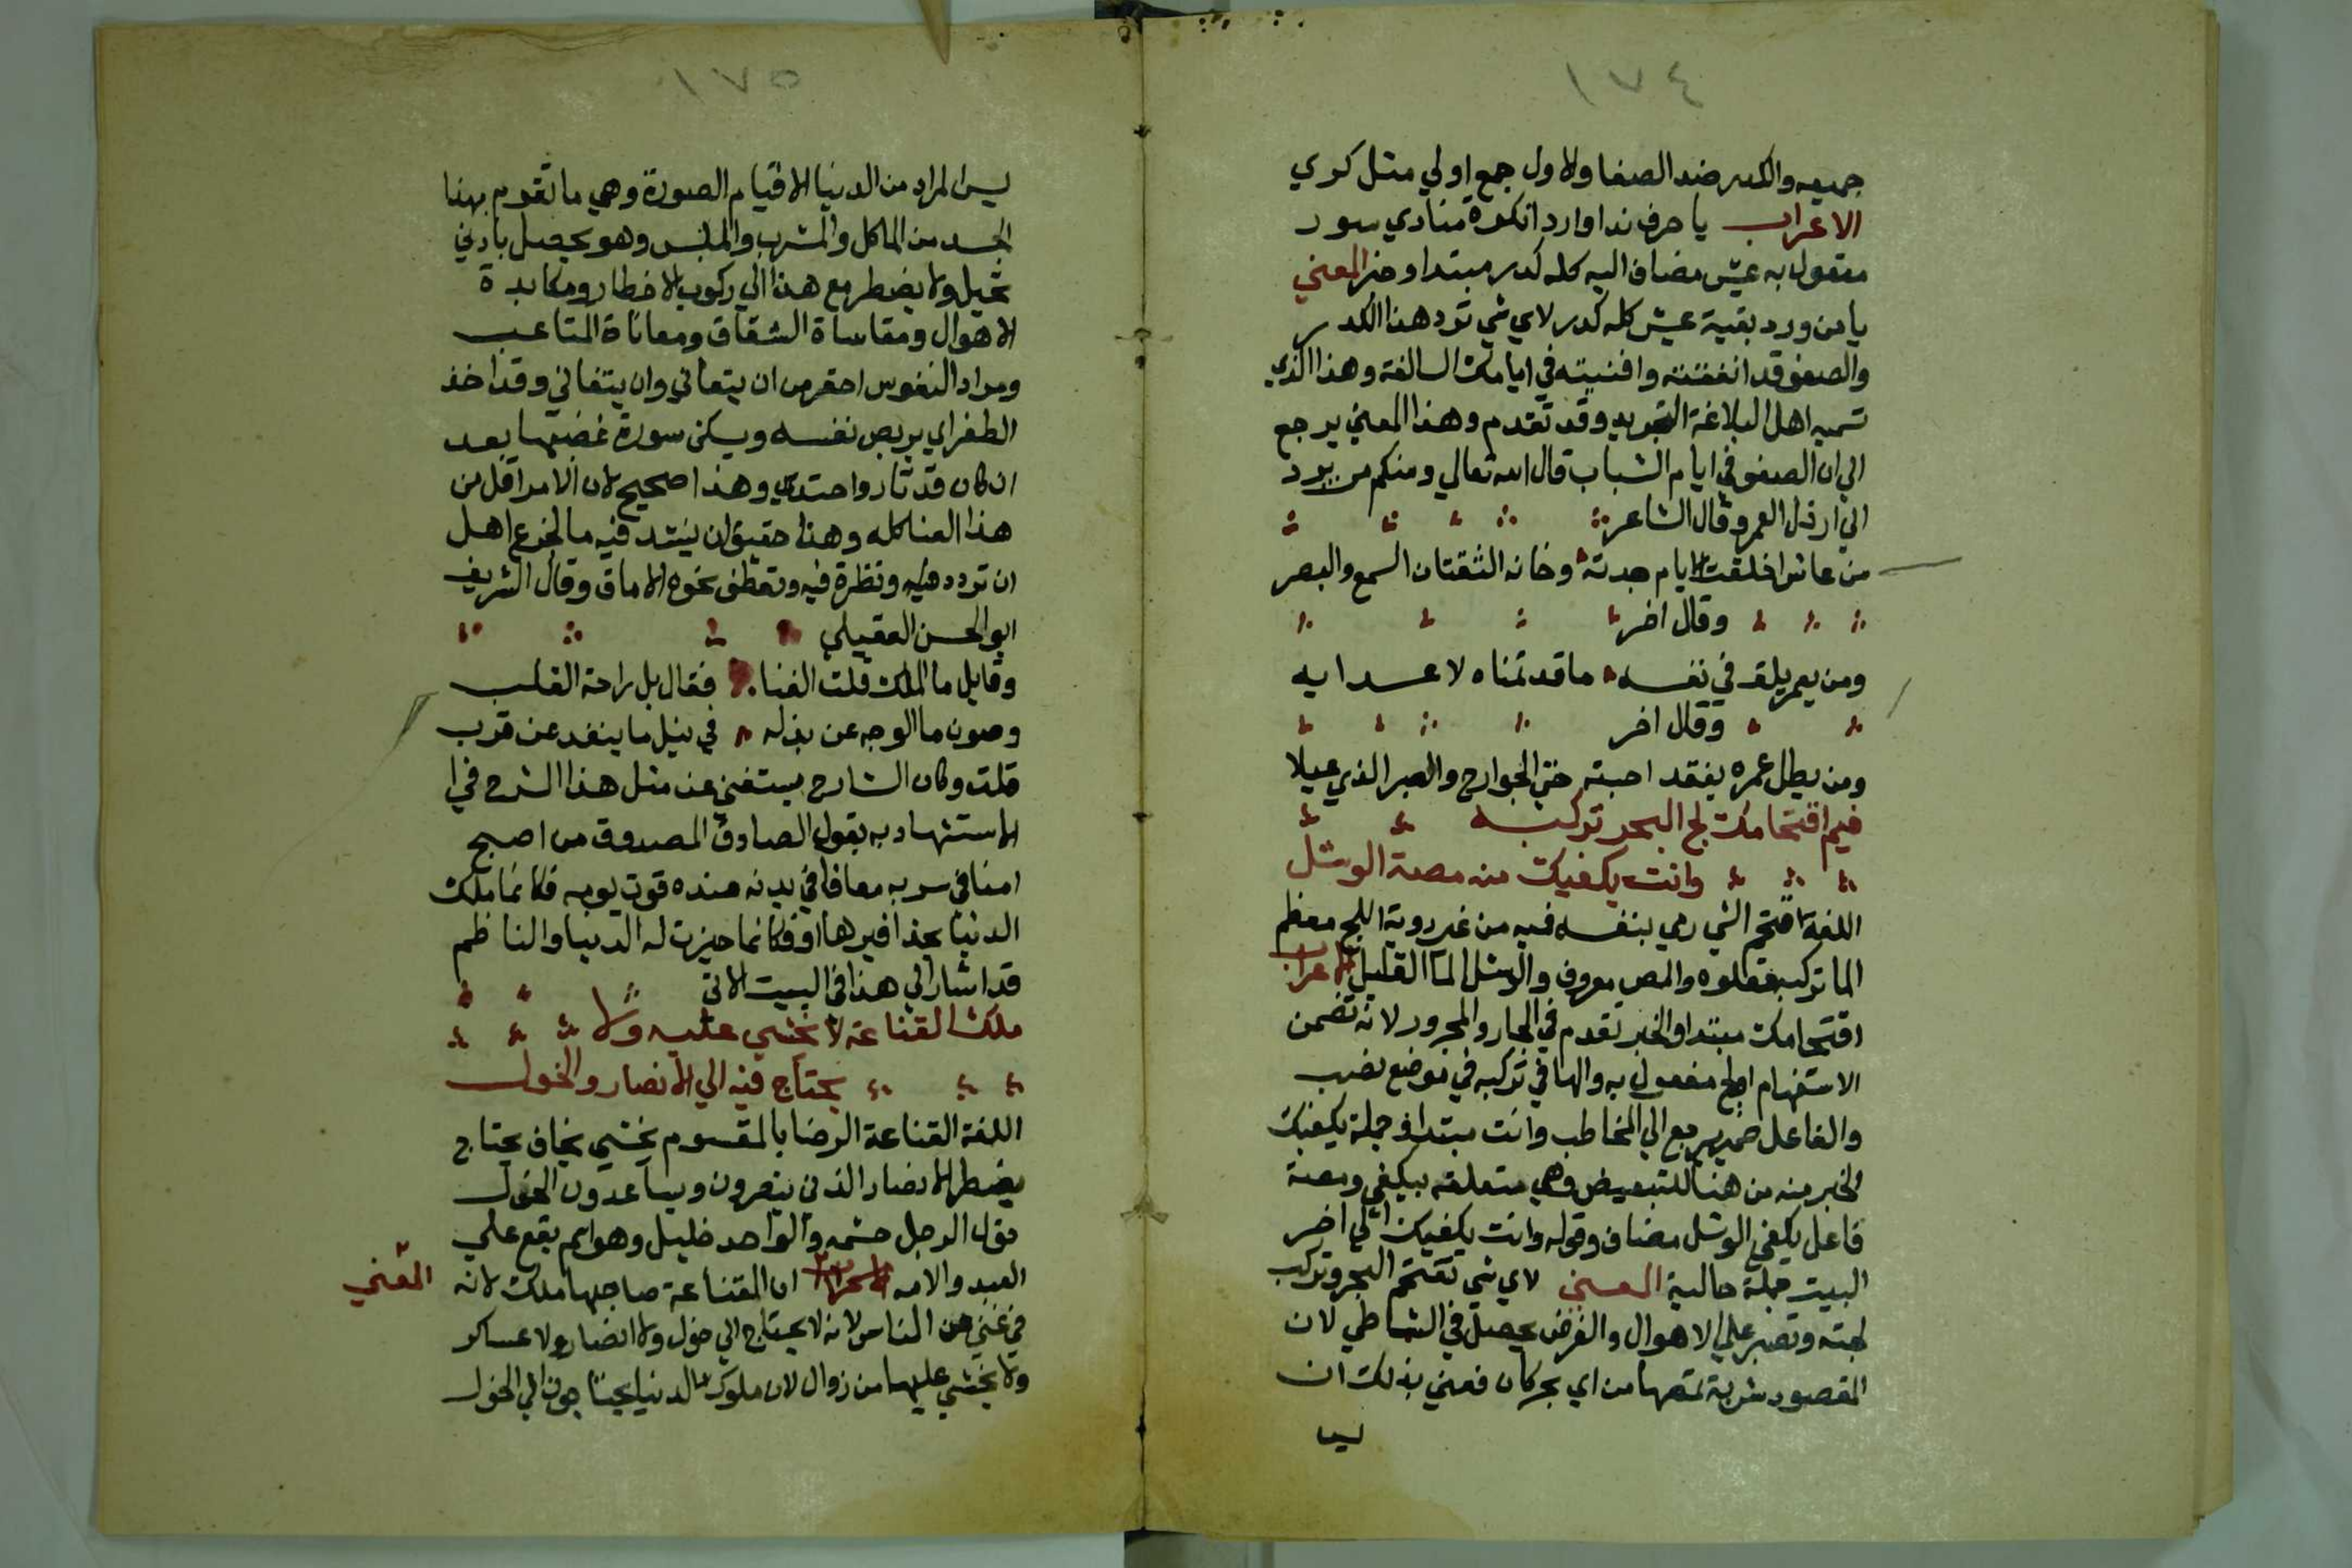 ١٧٤
جميعه والكدر ضد الصفا والاول جمع اولي مثل كوي
الاعراب يا حرف ندا واردا نكرة منادي سور
مفعول به عيش مضاف اليه كله كدر مبتدا وخبر المعني
يا من ورد بقية عيش كله كدر لاي شي ترد هذا الكدر
والصفو قد انفقته وافنيته في ايامك السالفة وهذا الذي
تسميه اهل البلاغة التجريد وقد تقدم وهذا المعني يرجع
الي ان الصفو في ايام الشباب قال الله تعالي ومنكم من يرد
الي ارذل العمر وقال الشاعر
من عاش اخلقت الايام جدته وخانه الثقتان السمع والبصر
وقال اخر
ومن يعمر يلق في نفسه ما قد تمناه لاعدايه
وقال اخر
ومن يطل عمره يفقد احبته حتي الجوارح والصبر الذي عيلا
فيم اقتحامك لج البحر تركبه
وانت يكفيك منه مصة الوشل
اللغة اقتحم الشي رمي بنفسه فيه من غير روية اللج معظم
الما تركبه تعلوه والمص معروف والوشل الما القليل الاعراب
اقتحامك مبتدا والخبر تقدم في الجار والمجرور لانه تضمن
الاستفهام لج مفعول به والها في تركبه في موضع نصب
والفاعل ضمير يرجع الي المخاطب وانت مبتدا وجملة يكفيك
الخبر منه من هنا للتبعيض وهي متعلقه بيكفي ومصة
فاعل يكفي الوشل مضاف وقوله وانت يكفيك الي اخر
البيت جملة حالية المعني لاي شي تقتحم البحر وتركب
لجته وتصبر علي الاهوال والغرض يحصل في الشاطي لان
المقصود شربة تمصها من اي بحر كان فعني بذلك ان
ليس
١٧٥
ليس المراد من الدنيا الا قيام الصورة وهي ما تقوم بهذا
الجسد من الماكل والمشرب والملبس وهو يحصل بادني
تحيل ولا يضطر مع هذا الي ركوب الاخطار ومكابدة
الاهوال ومقاساة الشقاق ومعاناة المتاعب
ومراد النفوس احقر من ان يتعاني وان يتفاني وقد اخذ
الطغراي يريض نفسه ويسكن سورة غضبها بعد
ان كان قد ثار واحتد وهذا صحيح لان الامر اقل من
هذا العنا كله وهذا حقيق ان ينشد فيه ما الجزع اهل
ان تردد فيه ونظرة فيه وتعطف نحوه الاماق وقال الشريف
ابو الحسن العقيلي
وقايل ما الملك قلت الغنا فقال بل راحة القلب
وصون ما الوجه عن بذله في نيل ما ينفد عن قرب
قلت وكان الشارح يستغني عن مثل هذا الشرح في ا
لاستشهاد به بقول الصادق المصدوق من اصبح
امنا في سربه معافا في بدنه عنده قوت يومه فكانما ملك
الدنيا بحذافيرها او فكانما حيزت له الدنيا والناظم
قد اشار الي هذا في البيت الاتي
ملك القناعة لا يخشي عليه ولا
يحتاج فيه الي الانصار والخول
اللغة القناعة الرضا بالمقسوم يخشي يخاف يحتاج
يضطر الانصار الذين ينصرون ويساعدون الخول
خول الرجل حشمه والواحد خليل وهو اسم يقع علي
العبد والامه الاعراب اما القناعة صاحبها ملك لانه
المعني
في غني عن الناس لانه لا يحتاج الي خول ولا انصار ولا عساكر
ولا يخشي عليها من زوال لان ملوك الدنيا يحتاجون الي الخول